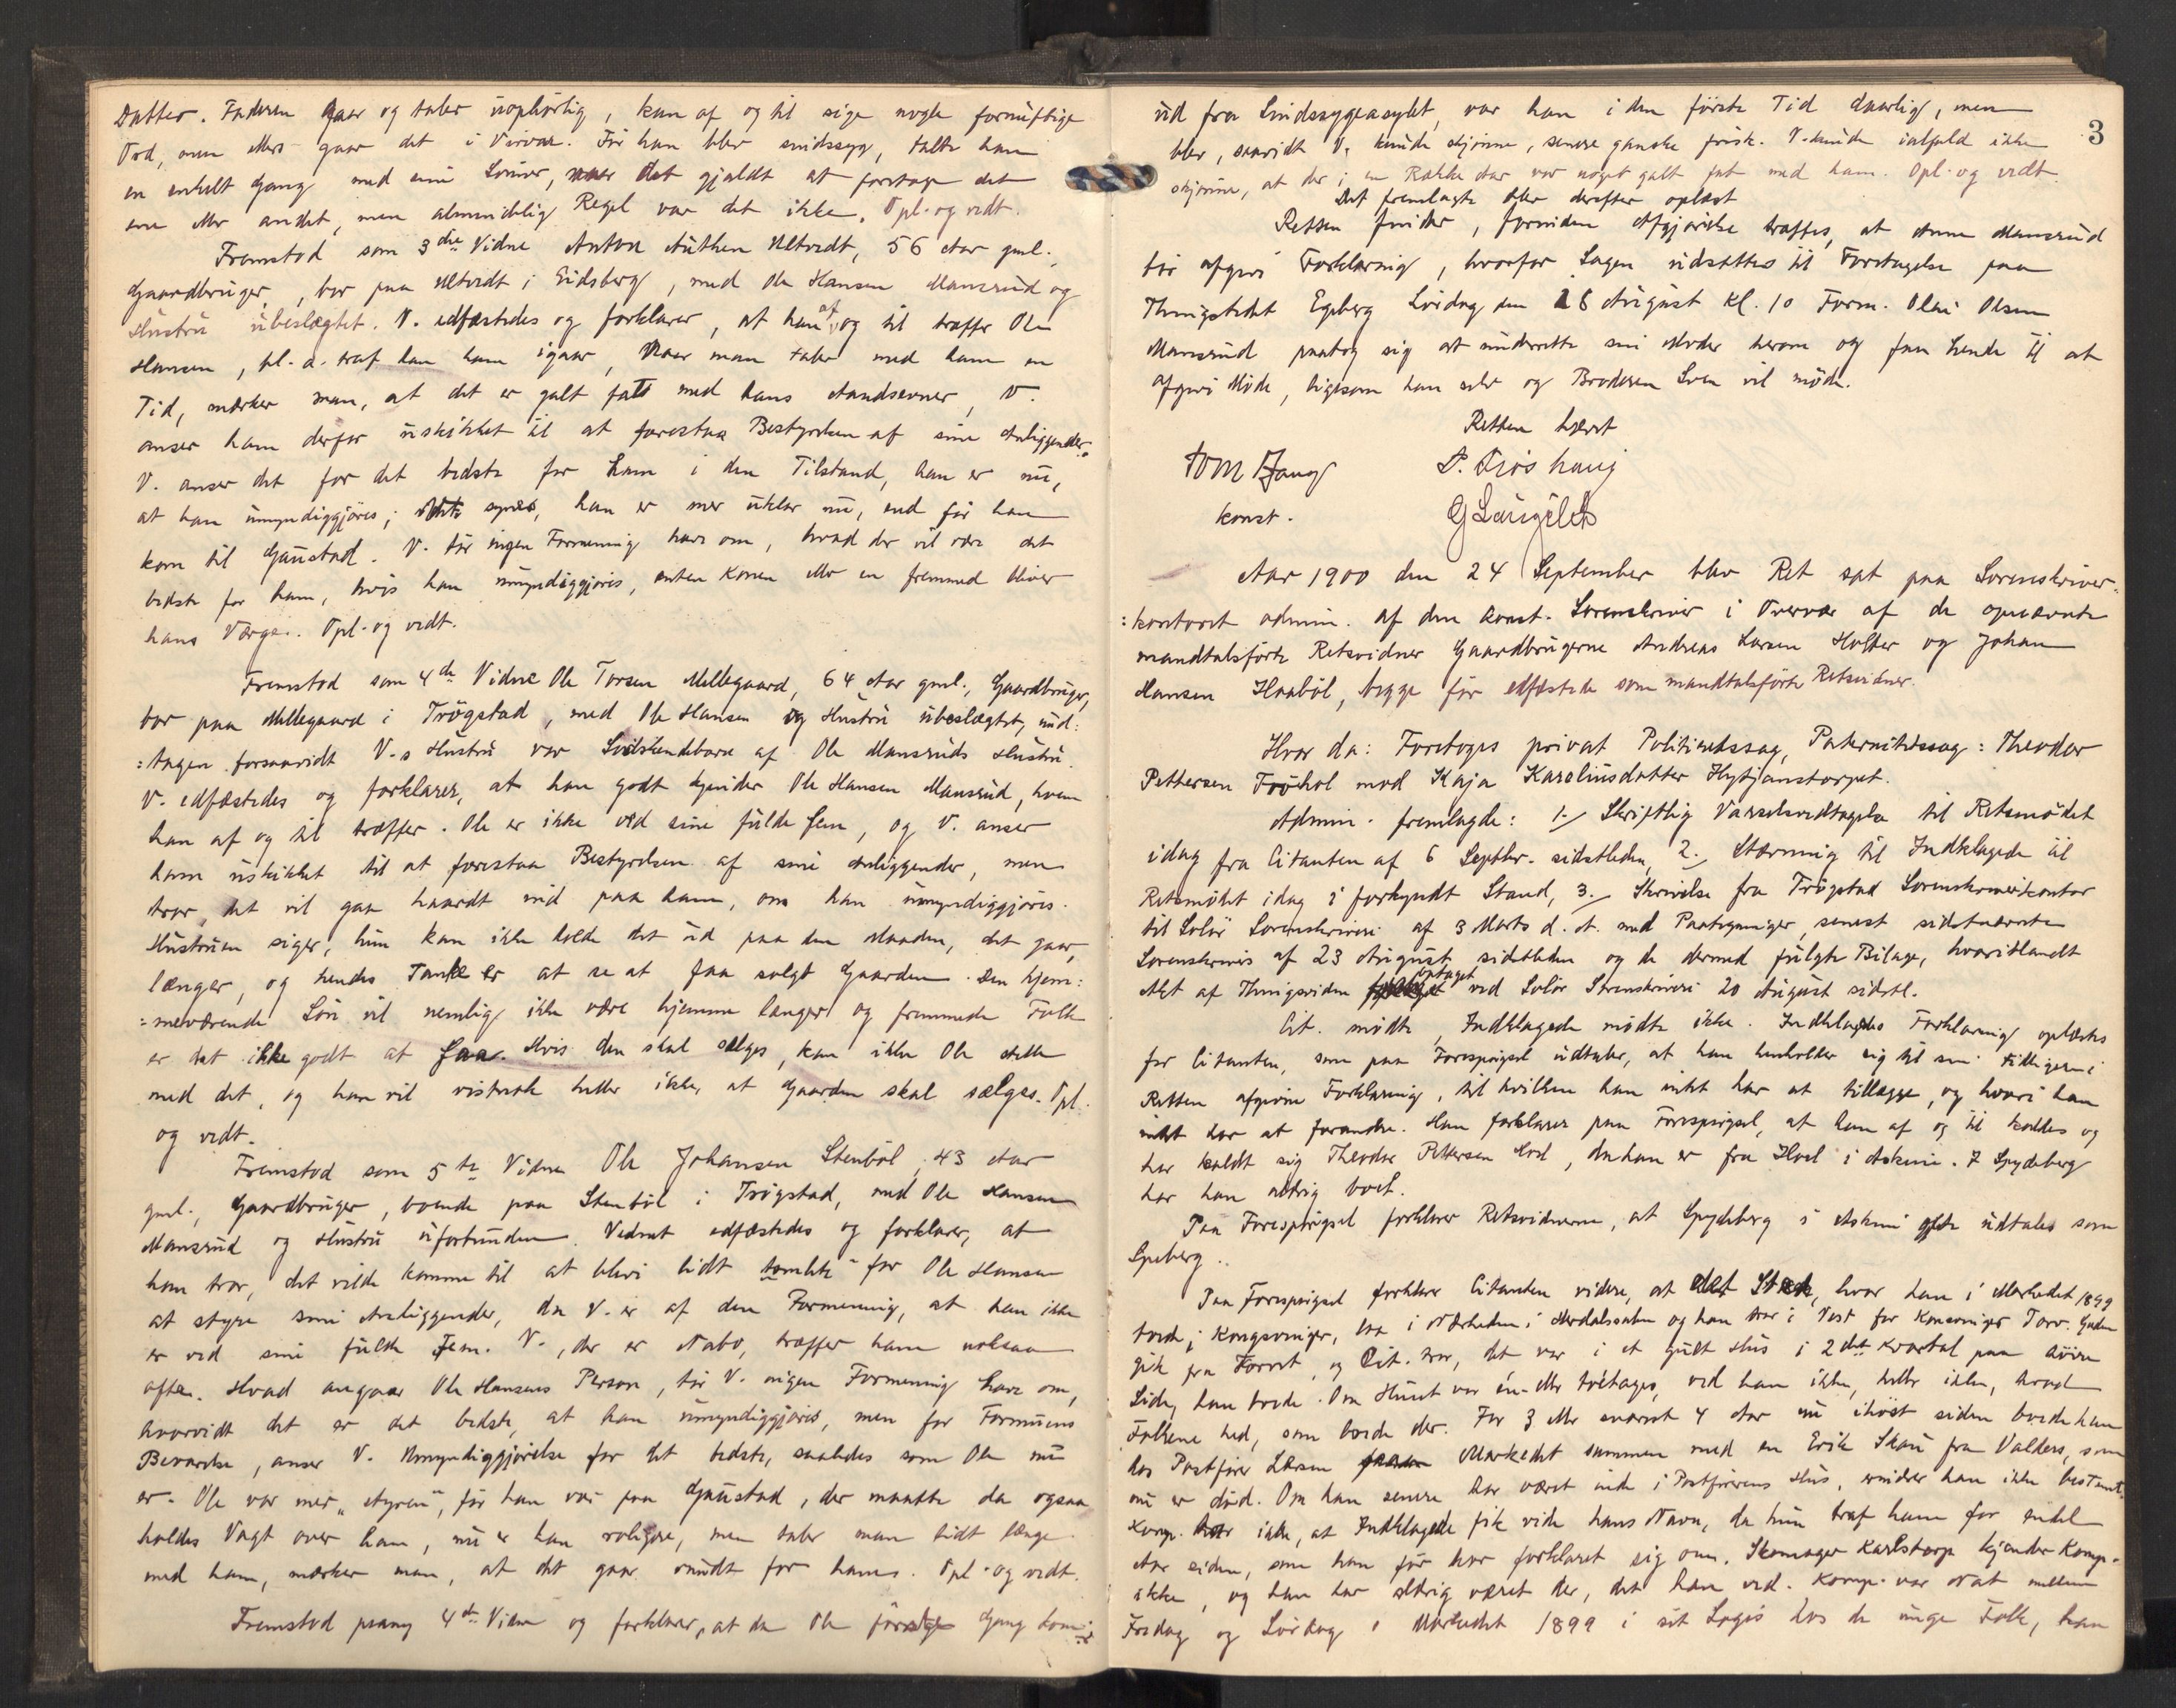 Datter. Faderen gaar og taler uophørlig, kan af og til sige nogle fornuftige
Ord, men ellers gaar det i Virvar. Før han blev sindssyg, talte han
en enkelt Gang med sine Sønner, naar det gjaldt at foretage det
ene eller andet, men almindelig Regel var det ikke. Opl. og vedt.
Fremstod som 3die Vidne Anton Authen 56 Aar gml.,
Gaardbruger, bor paa i Eidsberg, med Ole Hansen Mansrud og
Hustru ubeslægtet. V. edfæstedes og forklarer, at han af og til træffer Ole
Hansen, bl. a. traf han ham igaar, Naar man taler med ham en
Tid, mærker man, at det er galt fatt med hans Aandsevner, V.
anser ham derfor uskikket til at forestaa Bestyrelsen af sine Anliggender.
V. anser det for det bedste for ham i den Tilstand, han er nu,
at han umyndiggjøres; synes, han er mer uklar nu, end før han
kom til Gaustad. V. tør ingen Formening have om, hvad der vil være det
bedste for ham, hvis han umyndiggjøres, enten Konen eller en fremmed bliver
hans Værge. Opl. og vedt.
Fremstod som 4de Vidne Ole Torsen Millegaard, 64 Aar gml., Gaardbruger,
bor paa Millegaard i Trøgstad, med Ole Hansen og Hustru ubeslægtet, und:
:tagen forsaavidt V.s Hustru var Sødskendebarn af Ole Mansruds Hustru.
V. edfæstedes og forklarer, at han godt kjender Ole Hansen Mansrud, hvem
han af og til træffer. Ole er ikke ved sine fulde fem, og V. anser
ham uskikket til at forestaa Bestyrelsen af sine Anliggender, men
tror, det vil gaa haardt ind paa ham, om han umyndiggjøres.
Hustruen siger, hun kan ikke holde det ud paa den Maaden, det gaar,
længer, og hendes Tanke er at se at faa solgt Gaarden. Den hjem:
:meværende Søn vil nemlig ikke være hjemme længer og fremmede Folk
er det ikke godt at faa. Hvis den skal sælges, kan ikke Ole stelle
med det, og han vil vistnok heller ikke, at Gaarden skal sælges. Opl.
og vedt.
Fremstod som 5te Vidne Ole Johansen Stenbøl, 43 Aar
gml., Gaardbruger, boende paa Stenbøl i Trøgstad, med Ole Hansen
Mansrud og Hustru uforbunden. Vidnet edfæstedes og forklarer, at
han tror, det vilde komme til at blive lidt "tomlete" for Ole Hansen
at styre sine Anliggender, da V. er af den Formening, at han ikke
er ved sine fulde Fem. V., der er Nabo, træffer ham noksaa
ofte. Hvad angaar Ole Hansens Person, tør V. ingen Formening have om,
hvorvidt det er det bedste, at han umyndiggjøres, men for Formuens
Bevarelse, anser V. Umyndiggjørelse for det bedste, saaledes som Ole nu
er. Ole var mer "styren", før han var paa Gaustad, der maatte da ogsaa
holdes Vagt over ham, nu er han roligere, men taler man lidt længe
med ham, mærker man, at det gaar rundt for ham. Opl. og vedt.
Fremstod paany 4de Vidne og forklarer, at da Ole første Gang kom
3
ud fra Sindssygeasylet, var han i den første Tid daarlig, men
blev, saavidt V. kunde skjønne, senere ganske frisk. V. kunde ialfald ikke
skjønne, at der i en Række Aar var noget galt fat med ham. Opl. og vedt.
Det fremlagte blev derefter oplæst
Retten finder, forinden Afgjørelse træffes, at Anne Mansrud
bør afgive Forklaring, hvorfor Sagen udsættes til Foretagelse paa
Thingstedet Egeberg Lørdag den 18 August Kl. 10 Form. Olai Olsen
Mansrud paatog sig at underrette sin Moder herom og faa hende til at
afgive Møde, ligesom han selv og Broderen Sven vil møde.
Retten hævet
konst.
Aar 1900 den 24 September blev Ret sat paa Sorenskriver:
:kontoret admin. af den konst. Sorenskriver i Overvær af de opnævnte
mandtalsførte Retsvidner Gaardbrugerne Andreas Larsen Holter og Johan
Hansen Haabøl, begge før edfæstede som mandtalsførte Retsvidner.
Hvor da: Foretoges privat Politiretssag, Paternitetssag: Theodor
Pettersen mod Kaja Karoliusdatter
Admin. fremlagde: 1./ Skriftlig Varselsvedtagelse til Retsmødet
idag fra Citanten af 6 Septbr. sidstleden, 2./ Stævning til Indklagede til
Retsmødet idag i forkyndt Stand, 3./ Skrivelse fra Trøgstad Sorenskriverkontor
til Solør Sorenskriveri af 3 Marts d. A. med Paategninger, senest sidstnævnte
Sorenskrivers af 23 August sidstleden og de dermed fulgte Bilage, hvoriblandt
Akt af Thingsvidne optaget ved Solør Sorenskriveri 20 August sidstl.
Cit. mødte, Indklagede mødte ikke. Indklagedes Forklaring oplæstes
for Citanten, som paa Forespørgsel udtaler, at han henholder sig til sin tidligere i
Retten afgivne Forklaring, til hvilken han intet har at tillægge, og hvori han
intet har at forandre. Han forklarer paa Forespørgsel, at han af og til kaldes og
har kaldt sig Theodor Pettersen Hoel, da han er fra Hoel i Askim. I Spydeberg
har han aldrig boet.
Paa Forespørgsel forklarer Retsvidnerne, at Spydeberg i Askim ofte udtales som
Speberg.
Paa Forespørgsel forklarer Citanten videre, at det Sted, hvor han i Markedet 1899
boede i Kongsvinger, laa i Nærheden i og han tror i Vest for Kongsvinger Torv. Gaden
gik fra Torvet, og Cit. tror, det var i et gult Hus i 2det Kvartal paa høire
Side, han boede. Om Huset var én- eller toetages, ved han ikke, heller ikke, hvad
Folkene hed, som boede der. For 3 eller snarest 4 Aar nu ihøst siden boede han
hos Postfører Larsen Markedet sammen med en Erik Skau fra Valders, som
nu er død. Om han senere har været inde i Postførerens Hus, erindrer han ikke bestemt.
Komp. tror ikke, at Indklagede fik vide hans Navn, da hun traf ham for endel
Aar siden, som han før har forklaret sig om. Skomager Karlstorp kjender Komp.
ikke, og han har aldrig været der, det han ved. Komp. var Nat mellem
Fredag og Lørdag i Markedet 1899 i sit Logis hos de unge Folk, han